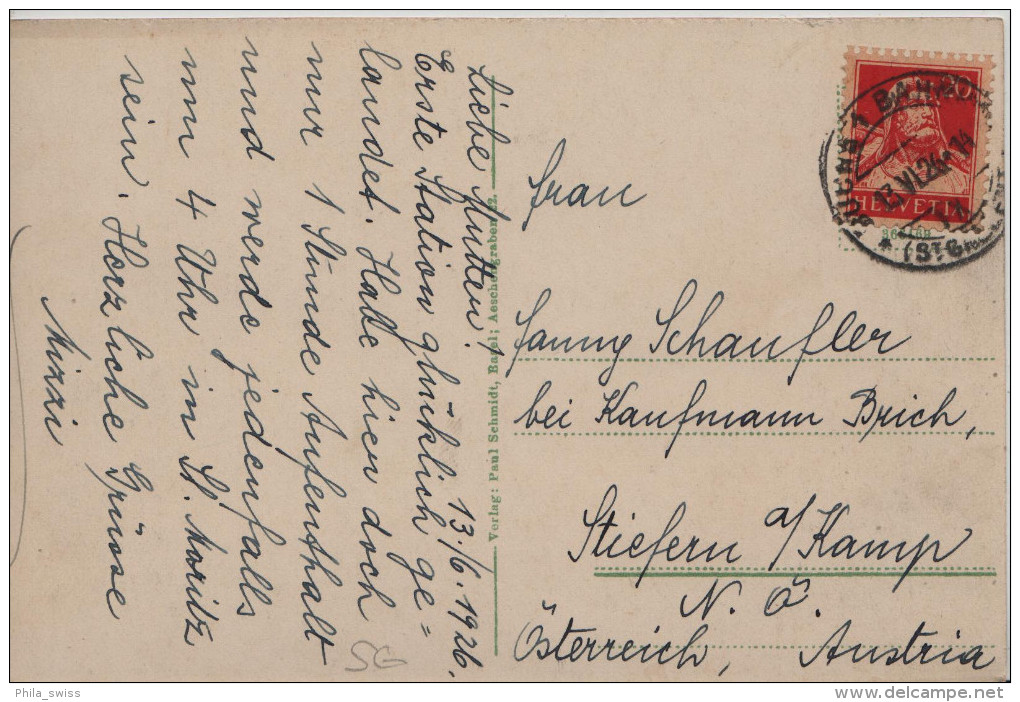 13./6. 1926.
Liebe Mutter!
Erste Station glücklich ge=
landet. Habe hier doch
nur 1 Stunde Aufenthalt
und werde jedenfalls
um 4 Uhr in St. Moritz
sein. Herzliche Grüsse
Mizzi
Verlag: Paul Schmidt, Basel; Aeschengraben
Frau
Fanny Schaufler
bei Kaufmann Brich,
Stiefern a/Kamp
N. Ö.
Österreich, Austria
SG
20
HELVETIA
BUCHS 1 BAHNHOF
13.VI.26
Phila_swiss
www.delcampe.net